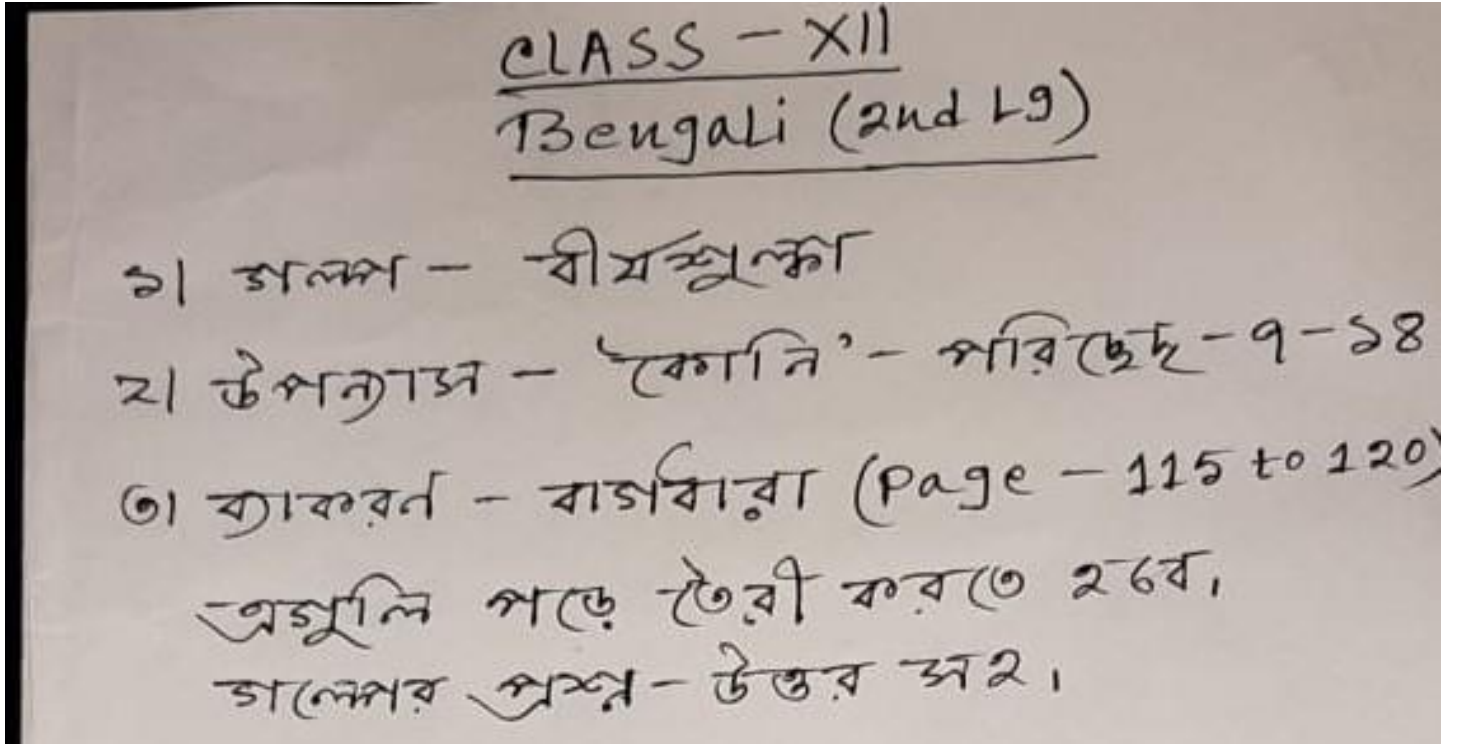 CLASS - XII
Bengali (2nd Lg)
১। গল্প - বীর্যশুল্কা
২। উপন্যাস - 'কোনি' - পরিচ্ছেদ - ৭ - ১৪
৩। ব্যাকরণ - বাগধারা (Page - 115 to 120)
এগুলি পড়ে তৈরী করতে হবে।
গল্পের প্রশ্ন - উত্তর সহ।